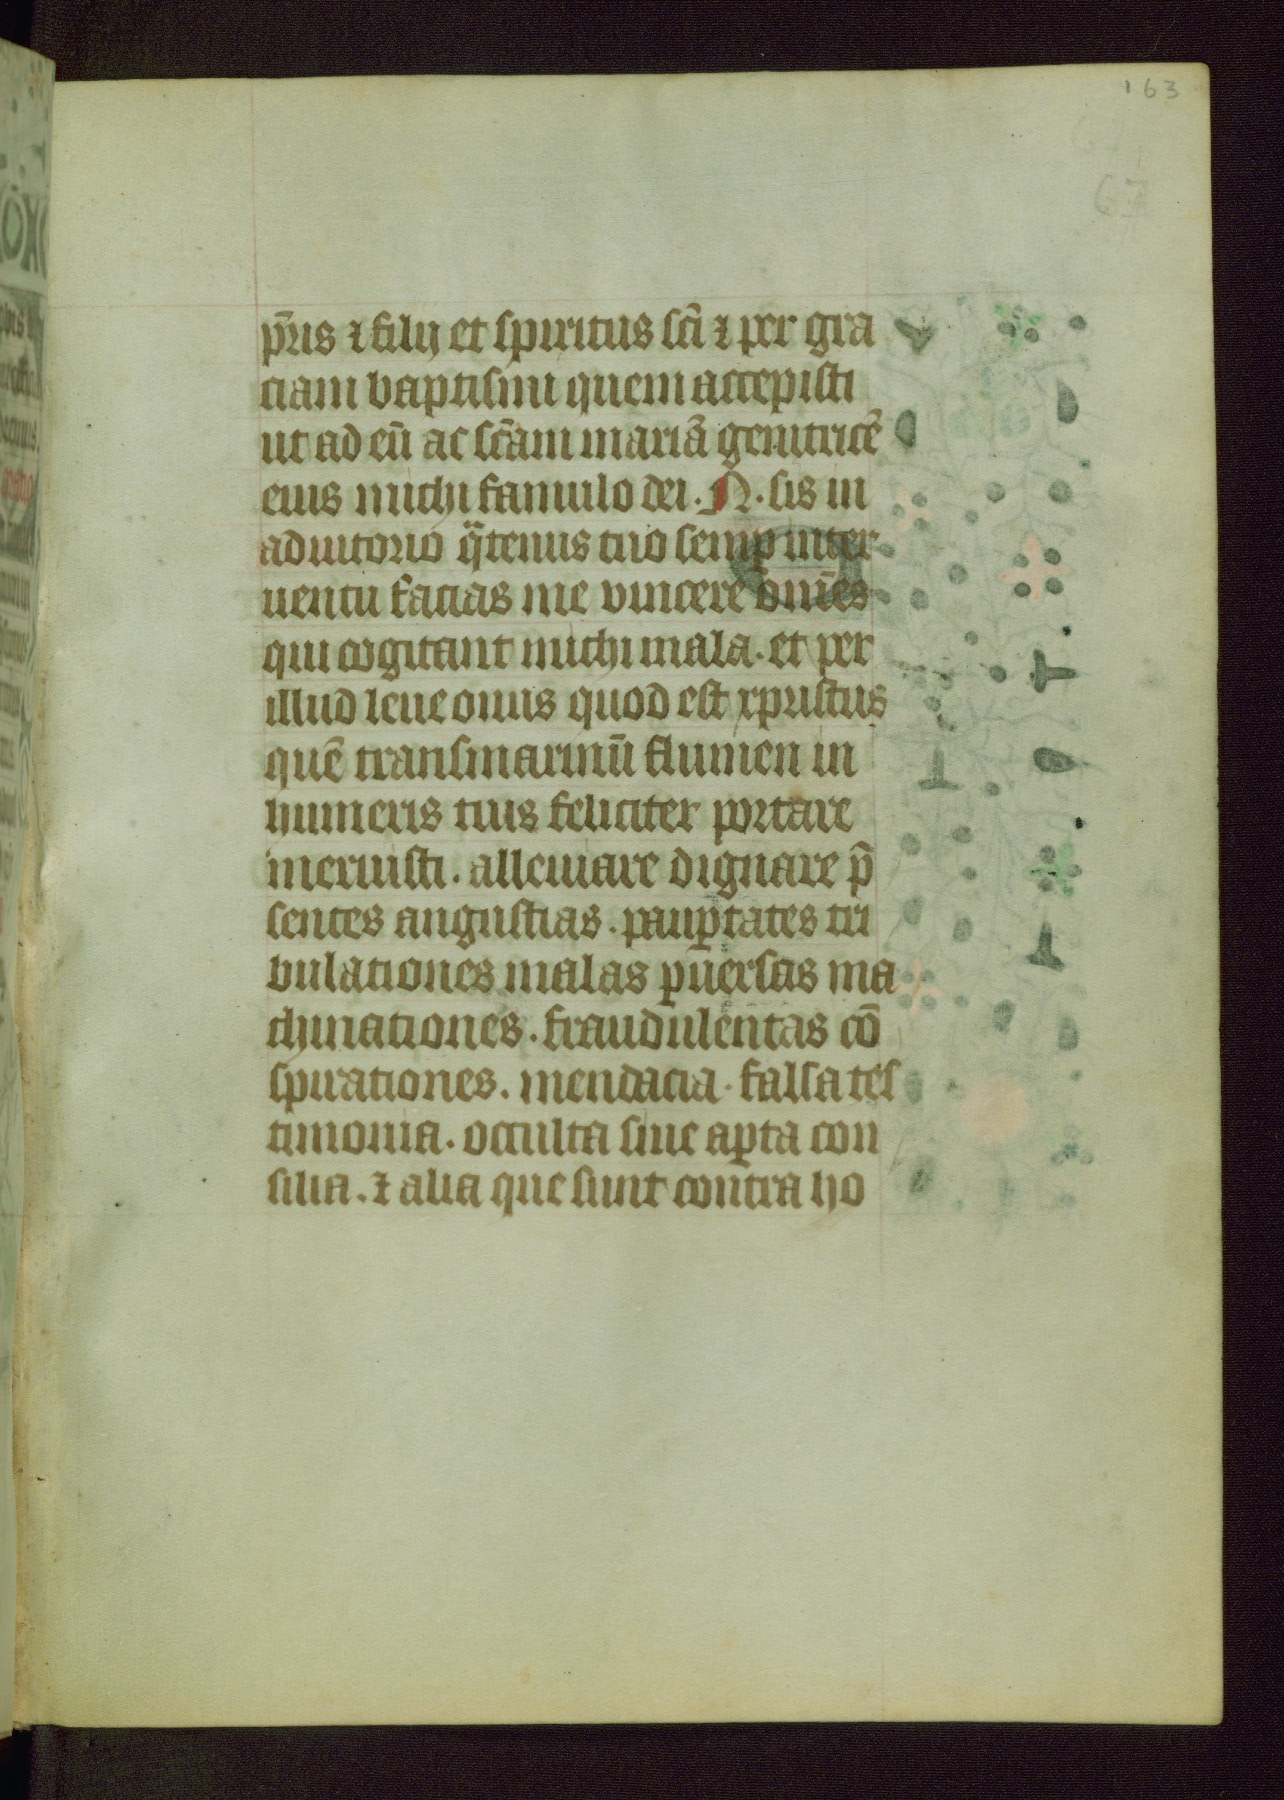 163
67
pr̄is ⁊ filij et spiritus sc̄i ⁊ per gra
ciam baptismi quem accepisti
ut ad eū ac sc̄am mariā genitricē
eius michi famulo dei . N . sis in
adiutorio q̄tenus tuo semꝑ inter
uentu facias me vincere om̄es
qui cogitant michi mala . et per
illud leue onus quod est xpristus
quē transmarinū flumen in
humeris tuis feliciter portare
meruisti . alleuiare dignare p̄
sentes angustias . pauꝑtates tri
bulationes malas ꝑuersas ma
chinationes . fraudulentas cō
spirationes . mendacia . falsa tes
timonia . occulta siue aꝑta con
silia . ⁊ alia que sunt contra ho